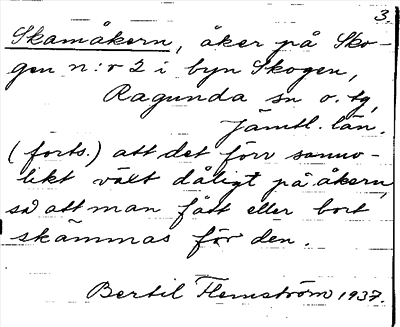 3.
Skamåkern, åker på Sko-
gen n:o 2 i byn Skogen,
Ragunda sn o. tg,
Jämtl. län.
(forts.) att det förr sanno-
likt växt dåligt på åkern,
så att man fått eller bort
skämmas för den.
Bertil Flemström 1937.